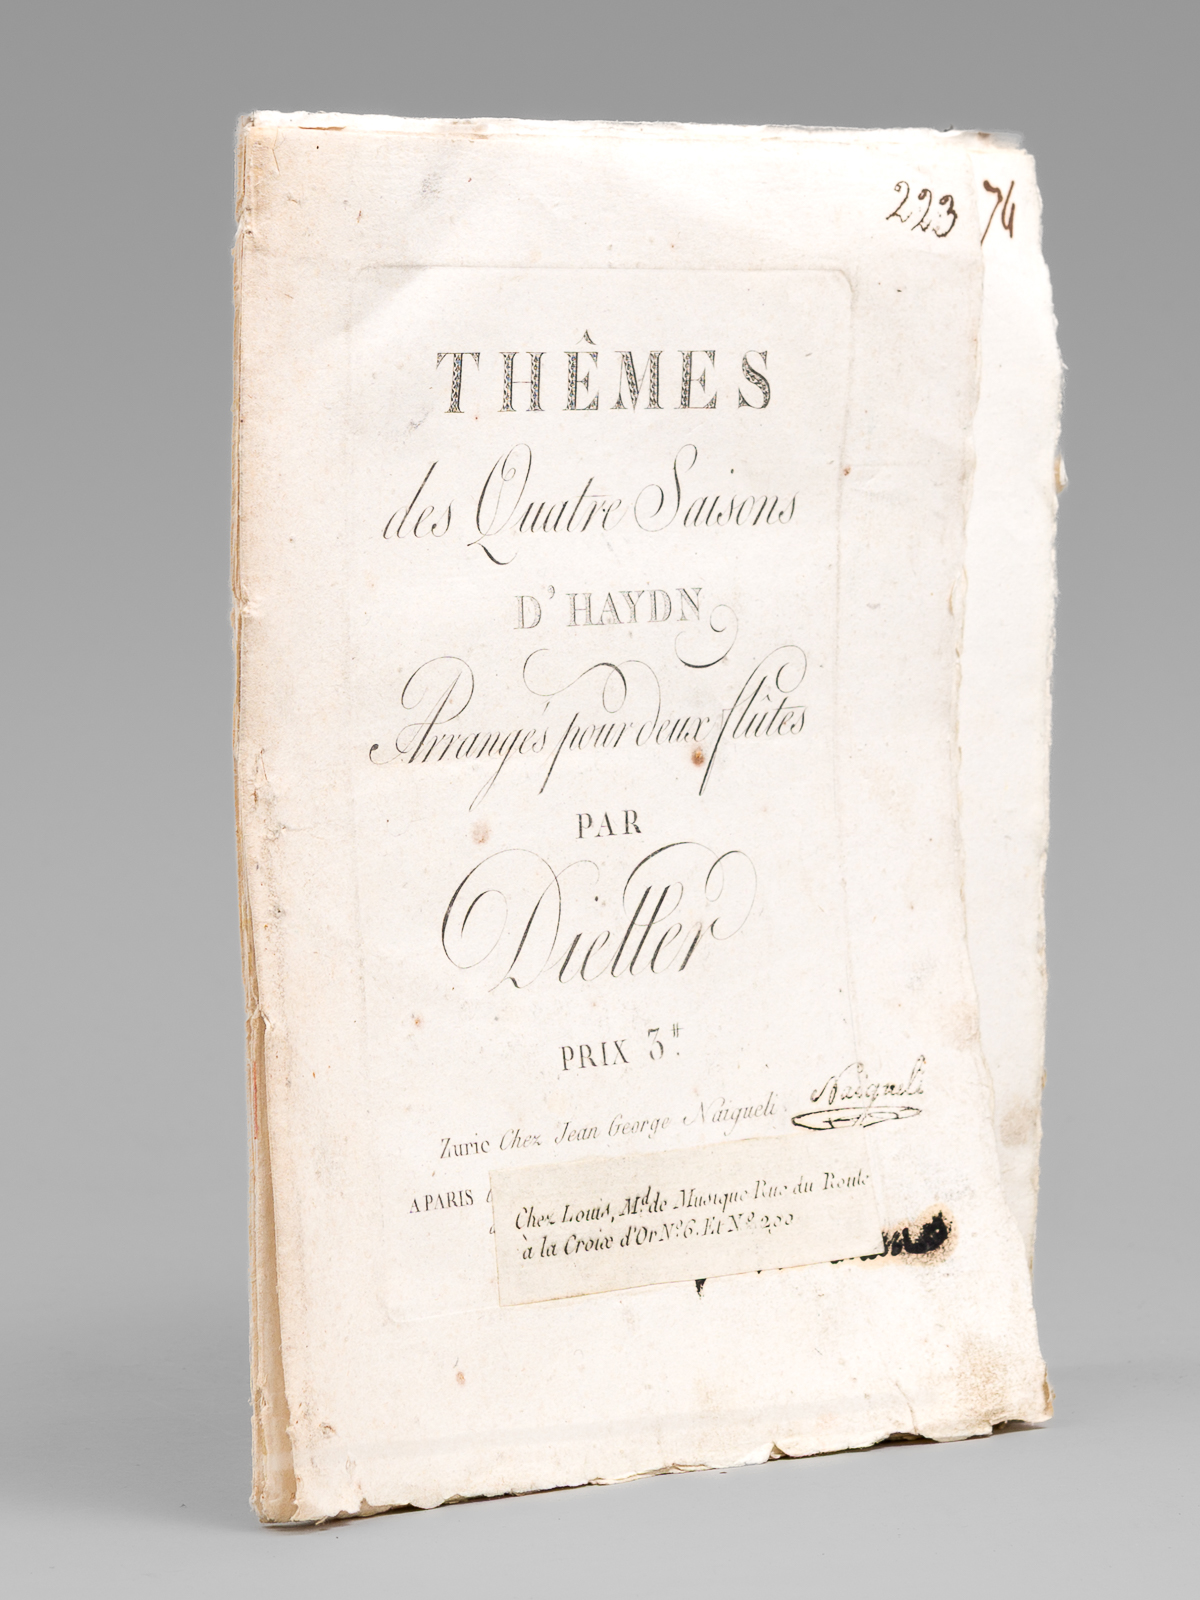 223 74
THÊMES
des Quatre Saisons
D'HAYDN
Arrangés pour deux flûtes
PAR
Dietter
PRIX 3.tt
Zuric Chez Jean George Naigueli. Naigueli
A PARIS
Chez Louis, Md. de Musique Rue du Roule
à la Croix d'Or No. 6. Et No. 290